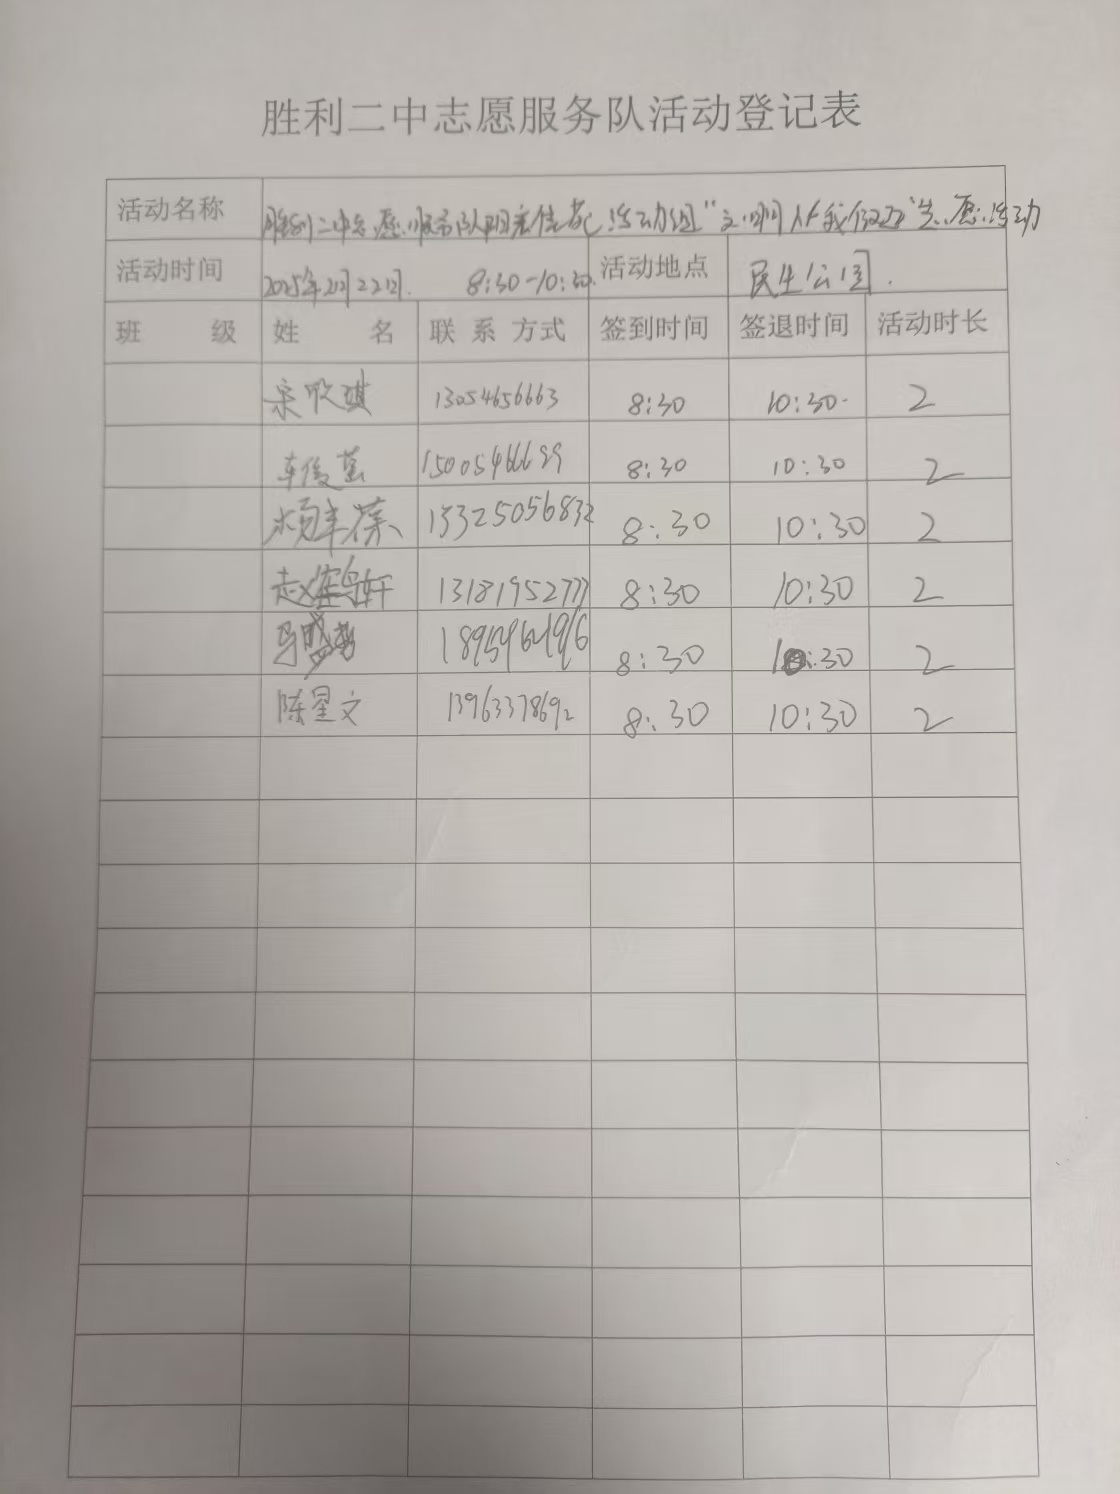 胜利二中志愿服务队活动登记表
活动名称 胜利二中志愿服务队 活动组“文明 我 ”志愿活动
活动时间 2025年2月22日. 8:30-10:30. 活动地点 民生公园.
班 级 姓 名 联系方式 签到时间 签退时间 活动时长
宋 琪 13054656663 8:30 10:30. 2
车俊 8:30 10:30 2
杨丰 15325056832 8:30 10:30 2
赵 轩 13181952777 8:30 10:30 2
马盛 8:30 10:30 2
陈星文 13963378692 8:30 10:30 2